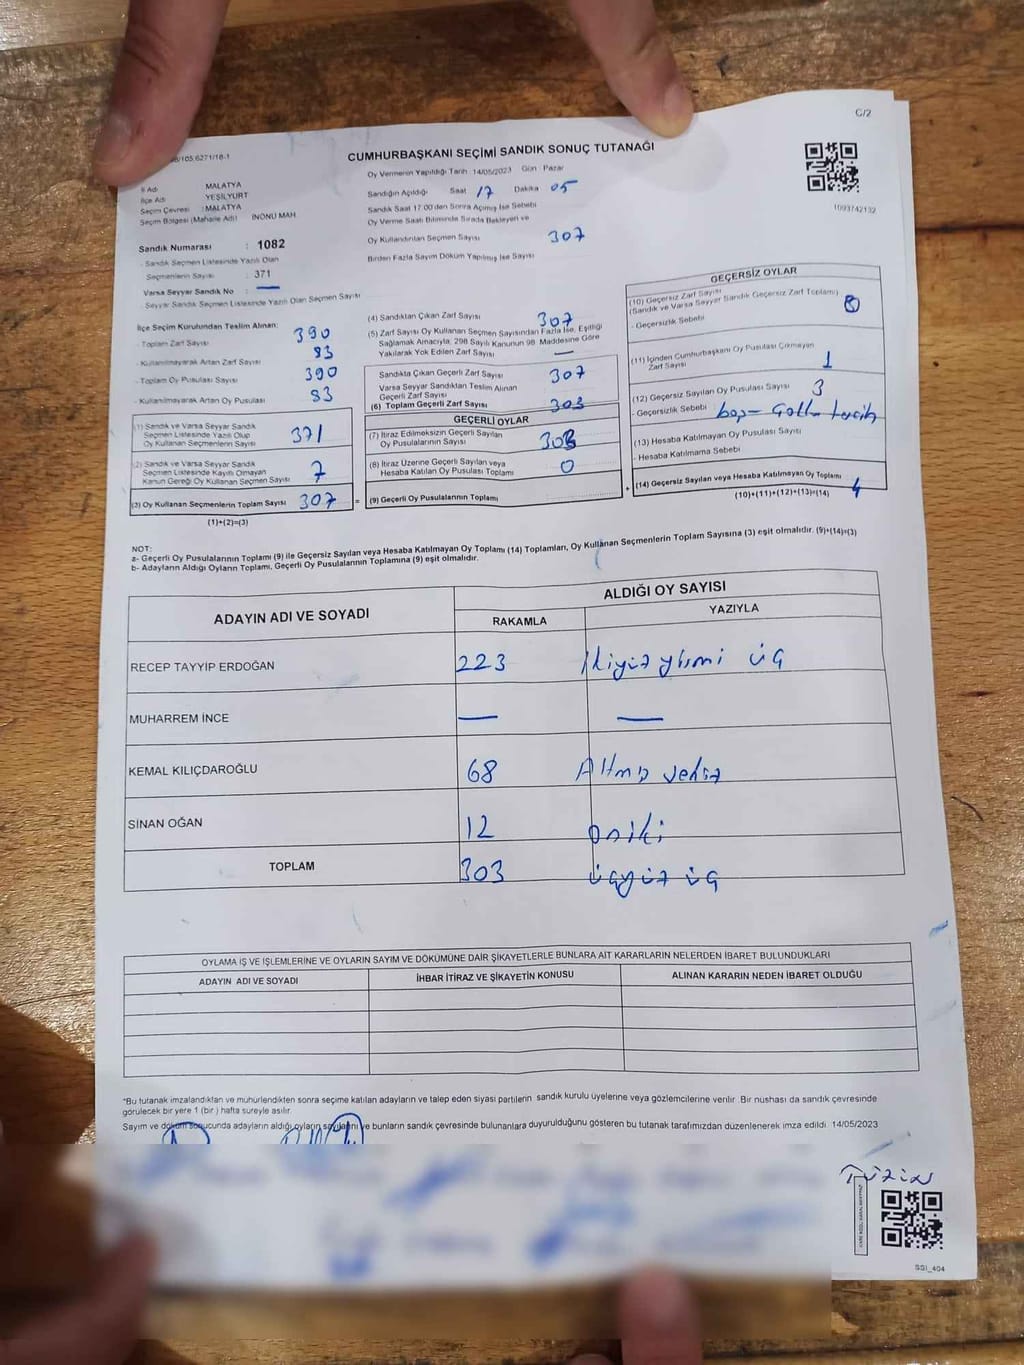 C/2
CUMHURBAŞKANI SEÇİMİ SANDIK SONUÇ TUTANAĞI
Oy Vermenin Yapıldığı Tarih : 14/05/2023 Gün : Pazar
İl Adı MALATYA
İlçe Adı YEŞİLYURT
Seçim Çevresi : MALATYA
Seçim Bölgesi (Mahalle Adı) İNÖNÜ MAH
Sandık Numarası : 1082
- Sandık Seçmen Listesinde Yazılı Olan
Seçmenlerin Sayısı : 371
Varsa Seyyar Sandık No : —
- Seyyar Sandık Seçmen Listesinde Yazılı Olan Seçmen Sayısı
Sandığın Açıldığı Saat 17 Dakika 05
Sandık Saat 17.00'den Sonra Açılmış İse Sebebi
Oy Verme Saati Bitiminde Sırada Bekleyen ve
Oy Kullandırılan Seçmen Sayısı 307
Birden Fazla Sayım Döküm Yapılmış İse Sayısı
1093742132
İlçe Seçim Kurulundan Teslim Alınan:
- Toplam Zarf Sayısı 390
- Kullanılmayarak Artan Zarf Sayısı 83
- Toplam Oy Pusulası Sayısı 390
- Kullanılmayarak Artan Oy Pusulası 83
(1) Sandık ve Varsa Seyyar Sandık
Seçmen Listesinde Yazılı Olup
Oy Kullanan Seçmenlerin Sayısı 371
(2) Sandık ve Varsa Seyyar Sandık
Seçmen Listesinde Kayıtlı Olmayan
Kanun Gereği Oy Kullanan Seçmen Sayısı 7
(3) Oy Kullanan Seçmenlerin Toplam Sayısı 307 =
(1)+(2)=(3)
(4) Sandıktan Çıkan Zarf Sayısı 307
(5) Zarf Sayısı Oy Kullanan Seçmen Sayısından Fazla İse, Eşitliği
Sağlamak Amacıyla; 298 Sayılı Kanunun 98. Maddesine Göre
Yakılarak Yok Edilen Zarf Sayısı —
Sandıkta Çıkan Geçerli Zarf Sayısı 307
Varsa Seyyar Sandıktan Teslim Alınan
Geçerli Zarf Sayısı
(6) Toplam Geçerli Zarf Sayısı 303
GEÇERLİ OYLAR
(7) İtiraz Edilmeksizin Geçerli Sayılan
Oy Pusulalarının Sayısı 303
(8) İtiraz Üzerine Geçerli Sayılan veya
Hesaba Katılan Oy Pusulası Toplamı 0
(9) Geçerli Oy Pusulalarının Toplamı +
GEÇERSİZ OYLAR
(10) Geçersiz Zarf Sayısı
(Sandık ve Varsa Seyyar Sandık Geçersiz Zarf Toplamı) 0
- Geçersizlik Sebebi
(11) İçinden Cumhurbaşkanı Oy Pusulası Çıkmayan
Zarf Sayısı 1
(12) Geçersiz Sayılan Oy Pusulası Sayısı 3
- Geçersizlik Sebebi boş
(13) Hesaba Katılmayan Oy Pusulası Sayısı
- Hesaba Katılmama Sebebi
(14) Geçersiz Sayılan veya Hesaba Katılmayan Oy Toplamı 4
(10)+(11)+(12)+(13)=(14)
NOT:
a- Geçerli Oy Pusulalarının Toplamı (9) ile Geçersiz Sayılan veya Hesaba Katılmayan Oy Toplamı (14) Toplamları, Oy Kullanan Seçmenlerin Toplam Sayısına (3) eşit olmalıdır. (9)+(14)=(3)
b- Adayların Aldığı Oyların Toplamı, Geçerli Oy Pusulalarının Toplamına (9) eşit olmalıdır.
ADAYIN ADI VE SOYADI ALDIĞI OY SAYISI
RAKAMLA YAZIYLA
RECEP TAYYİP ERDOĞAN 223 ikiyüz yirmi üç
MUHARREM İNCE — —
KEMAL KILIÇDAROĞLU 68 Altmış sekiz
SİNAN OĞAN 12 oniki
TOPLAM 303 üçyüz üç
OYLAMA İŞ VE İŞLEMLERİNE VE OYLARIN SAYIM VE DÖKÜMÜNE DAİR ŞİKAYETLERLE BUNLARA AİT KARARLARIN NELERDEN İBARET BULUNDUKLARI
ADAYIN ADI VE SOYADI İHBAR İTİRAZ VE ŞİKAYETİN KONUSU ALINAN KARARIN NEDEN İBARET OLDUĞU
*Bu tutanak imzalandıktan ve mühürlendikten sonra seçime katılan adayların ve talep eden siyasi partilerin sandık kurulu üyelerine veya gözlemcilerine verilir. Bir nüshası da sandık çevresinde
görülecek bir yere 1 (bir) hafta süreyle asılır.
Sayım ve döküm sonucunda adayların aldığı oyların sayılarını ve bunların sandık çevresinde bulunanlara duyurulduğunu gösteren bu tutanak tarafımızdan düzenlenerek imza edildi. 14/05/2023
SSI_404